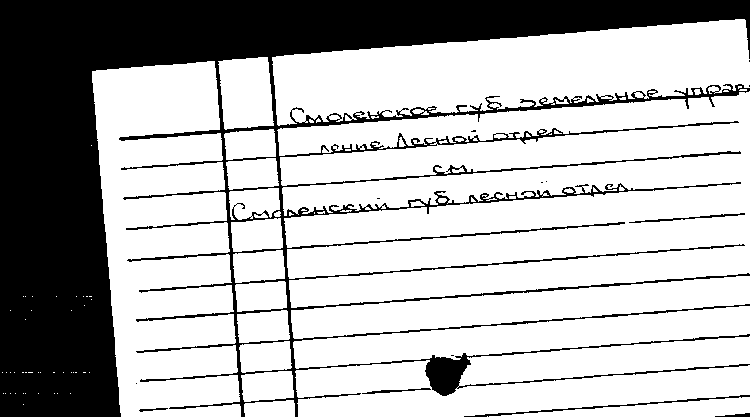 Смоленское губ. земельное управ-
ление. Лесной отдел.
см.
Смоленский губ. лесной отдел.